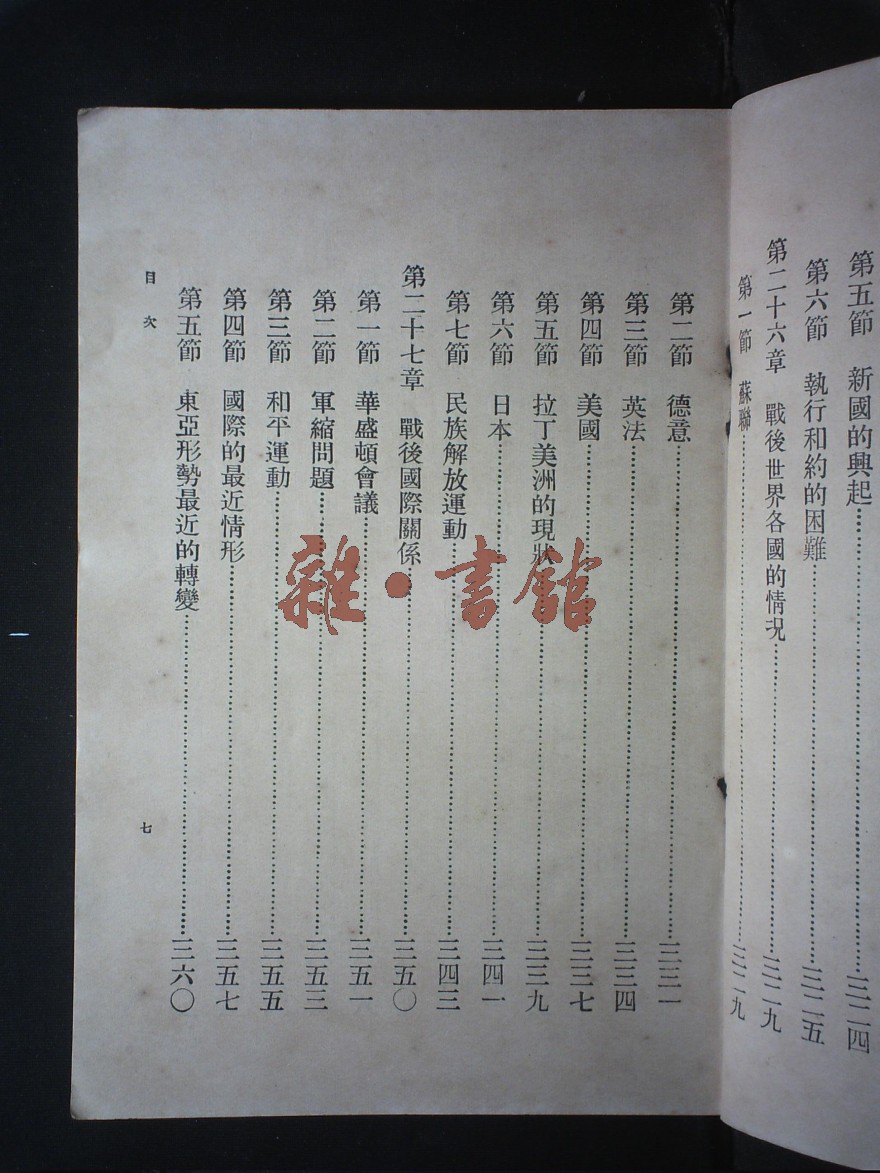 第五節　新國的興起……三二四
第六節　執行和約的困難……三二五
第二十六章　戰後世界各國的情况……三二九
第一節　蘇聯……三二九
第二節　德意……三三一
第三節　英法……三三四
第四節　美國……三三七
第五節　拉丁美洲的現狀……三三九
第六節　日本……三四一
第七節　民族解放運動……三四三
第二十七章　戰後國際關係……三五〇
第一節　華盛頓會議……三五一
第二節　軍縮問題……三五三
第三節　和平運動……三五五
第四節　國際的最近情形……三五七
第五節　東亞形勢最近的轉變……三六〇
目次
七
雜·書館